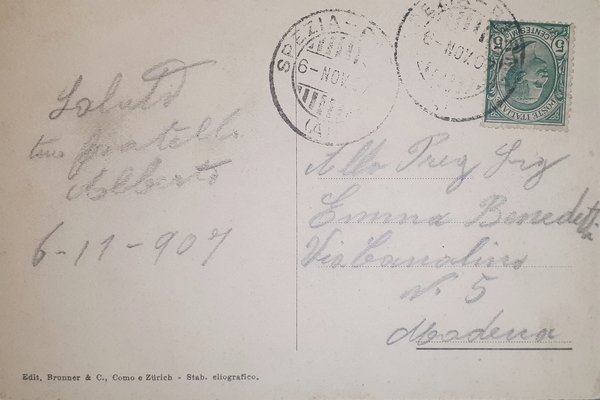 Saluto
tuo fratello
Alberto
6-11-907
SPEZIA
6-NOV.
6-NOV.
5
5
CENTESIMI
POSTE ITALIANE
Alla Preg Sig
Emma Benedetti
Via Canalino
N. 5
Modena
Edit. Brunner & C., Como e Zürich - Stab. eliografico.